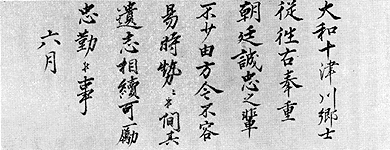 大和十津川郷士
従往古奉重
朝廷誠忠之輩
不少由方今不容
易時勢ニ候間其
遺志相續可勵
忠勤候事
六月